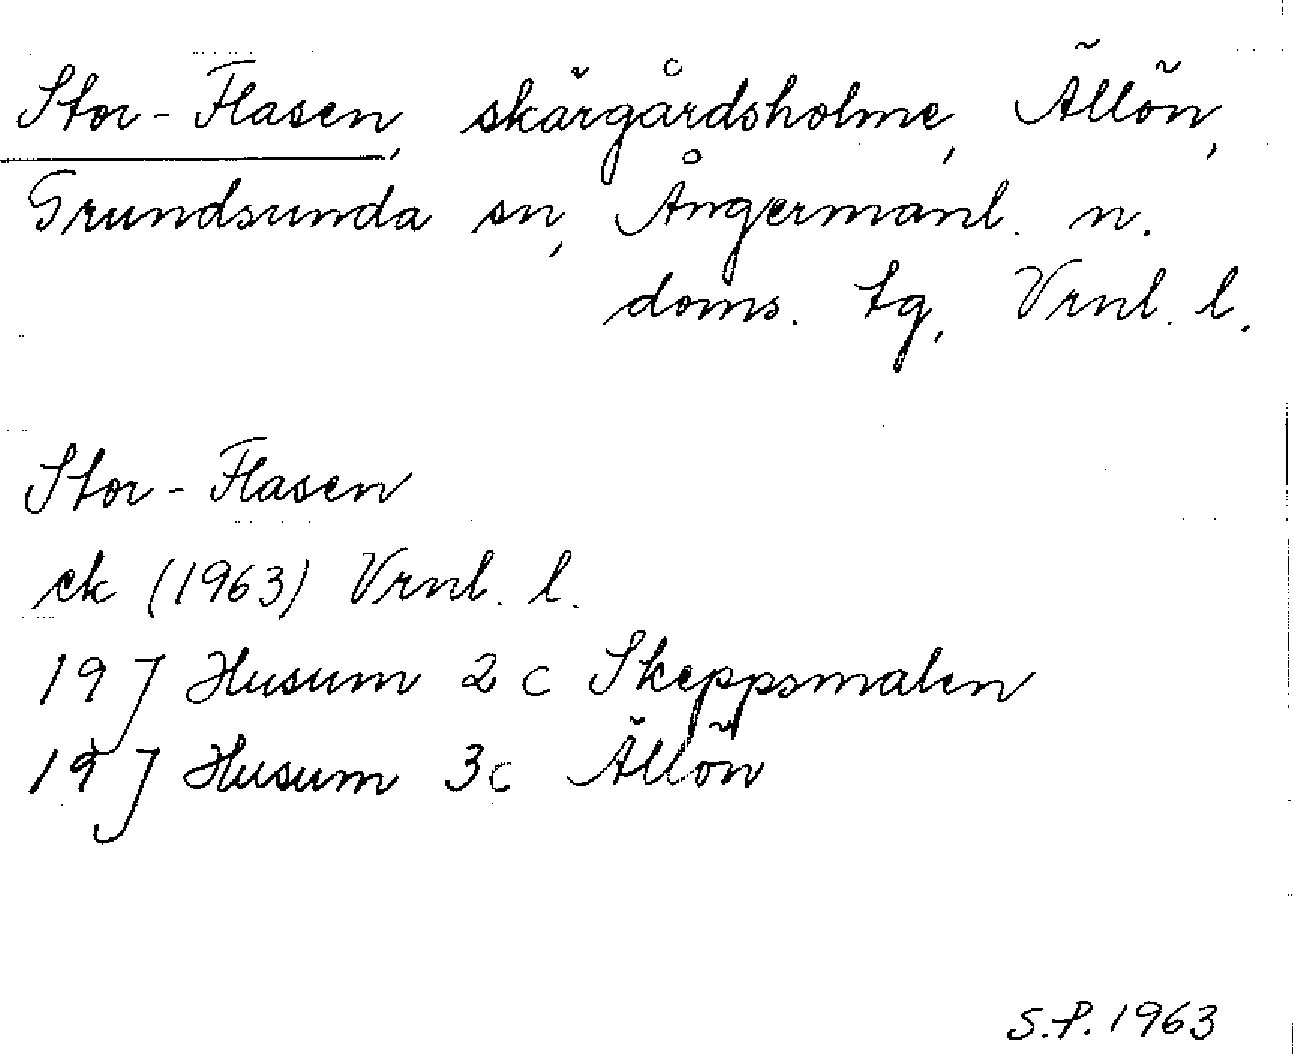 Stor-Flasen, skärgårdsholme, Ällön,
Grundsunda sn, Ångermanl. n.
doms. tg, Vrnl. l.
Stor-Flasen
ek (1963) Vrnl. l.
19 J Husum 2c Skeppsmalen
19 J Husum 3c Ällön
S.P. 1963